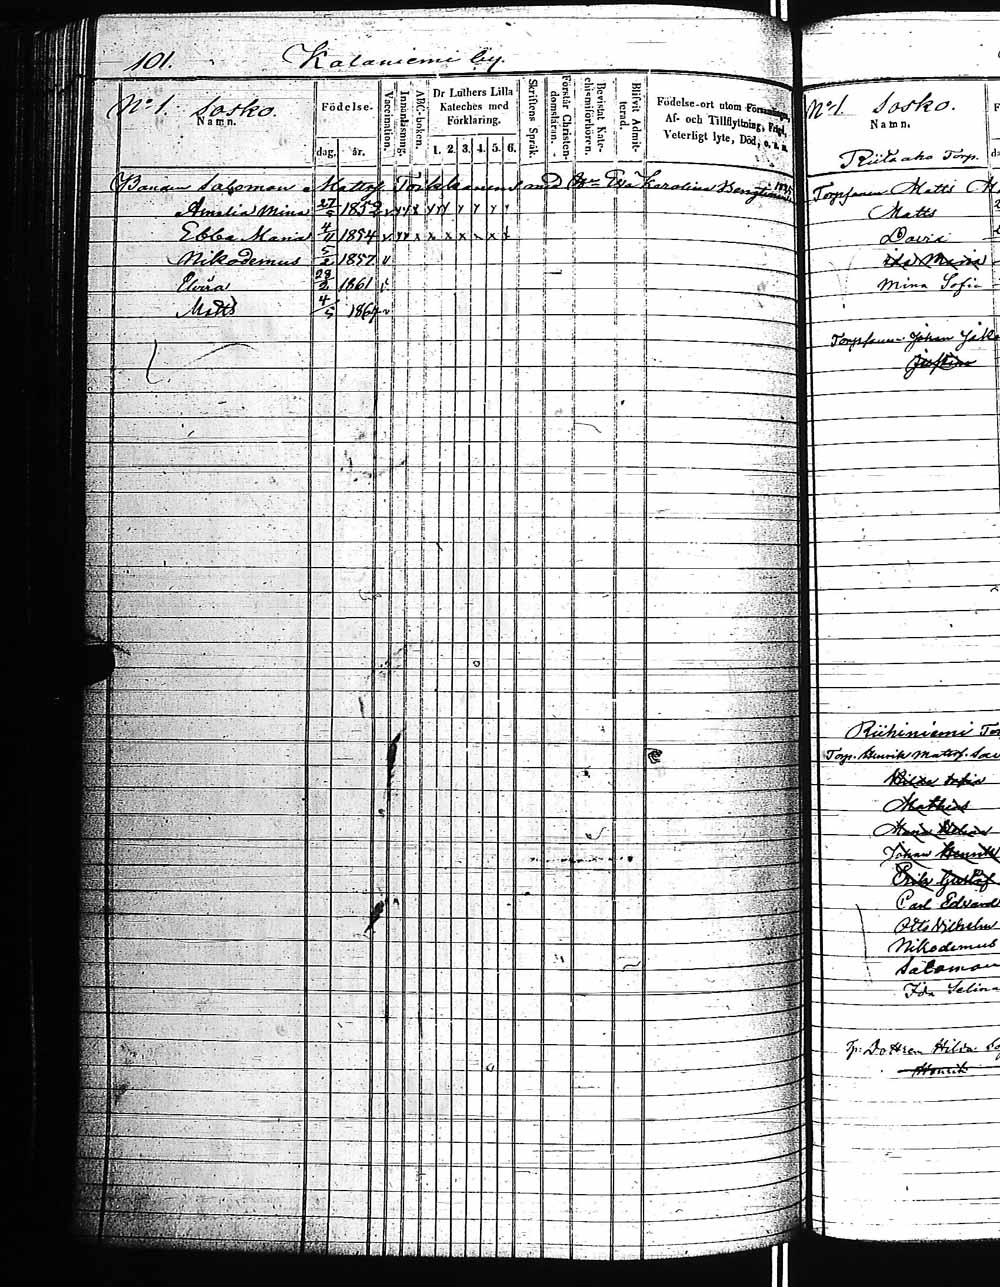 101. Kataniemi by.
No 1. Sosko.
Namn.
Födelse-
dag.
år.
Vaccination.
Innanläsning.
ABC-boken.
Dr Luthers Lilla
Kateches med
Förklaring.
1. 2. 3. 4. 5. 6.
Skriftens Språk.
Förstår Christen-
domsläran.
Bevistat Kate-
chismiförhören.
Blifvit Admit-
terad.
Födelse-ort utom Församlingen,
Af- och Tillflyttning, Frägd,
Veterligt lyte, Död, o. s. v.
Bonden Salomon Mattsf. Eva Karolina
Amalia Mina 27/5 1852
Ebba Maria 4/11 1854
Nikodemus 5/2 1857
Elvira 28/2 1861
Matts 4/5 1864
No 1. Sosko.
Namn.
Riitaaho Torp.
Torpparen Matts
Matts
David
Ida Maria
Mina Sofia
Torpparen Johan
Justina
Riihiniemi
Torp. Henrik Mattsf.
Hilda Sofia
Mathias
Maria
Johan Henrik
Erik Gustaf
Carl Edvard
Otto Vilhelm
Nikodemus
Salomon
Ida Selina
Dottren Hilda
Henrik